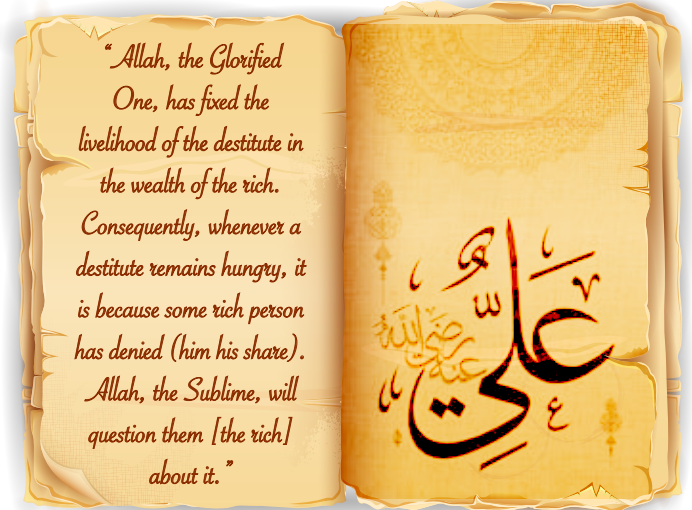 “Allah, the Glorified
One, has fixed the
livelihood of the destitute in
the wealth of the rich.
Consequently, whenever a
destitute remains hungry, it
is because some rich person
has denied (him his share).
Allah, the Sublime, will
question them [the rich]
about it.”
عَلِيٌّ
رضي الله عنه